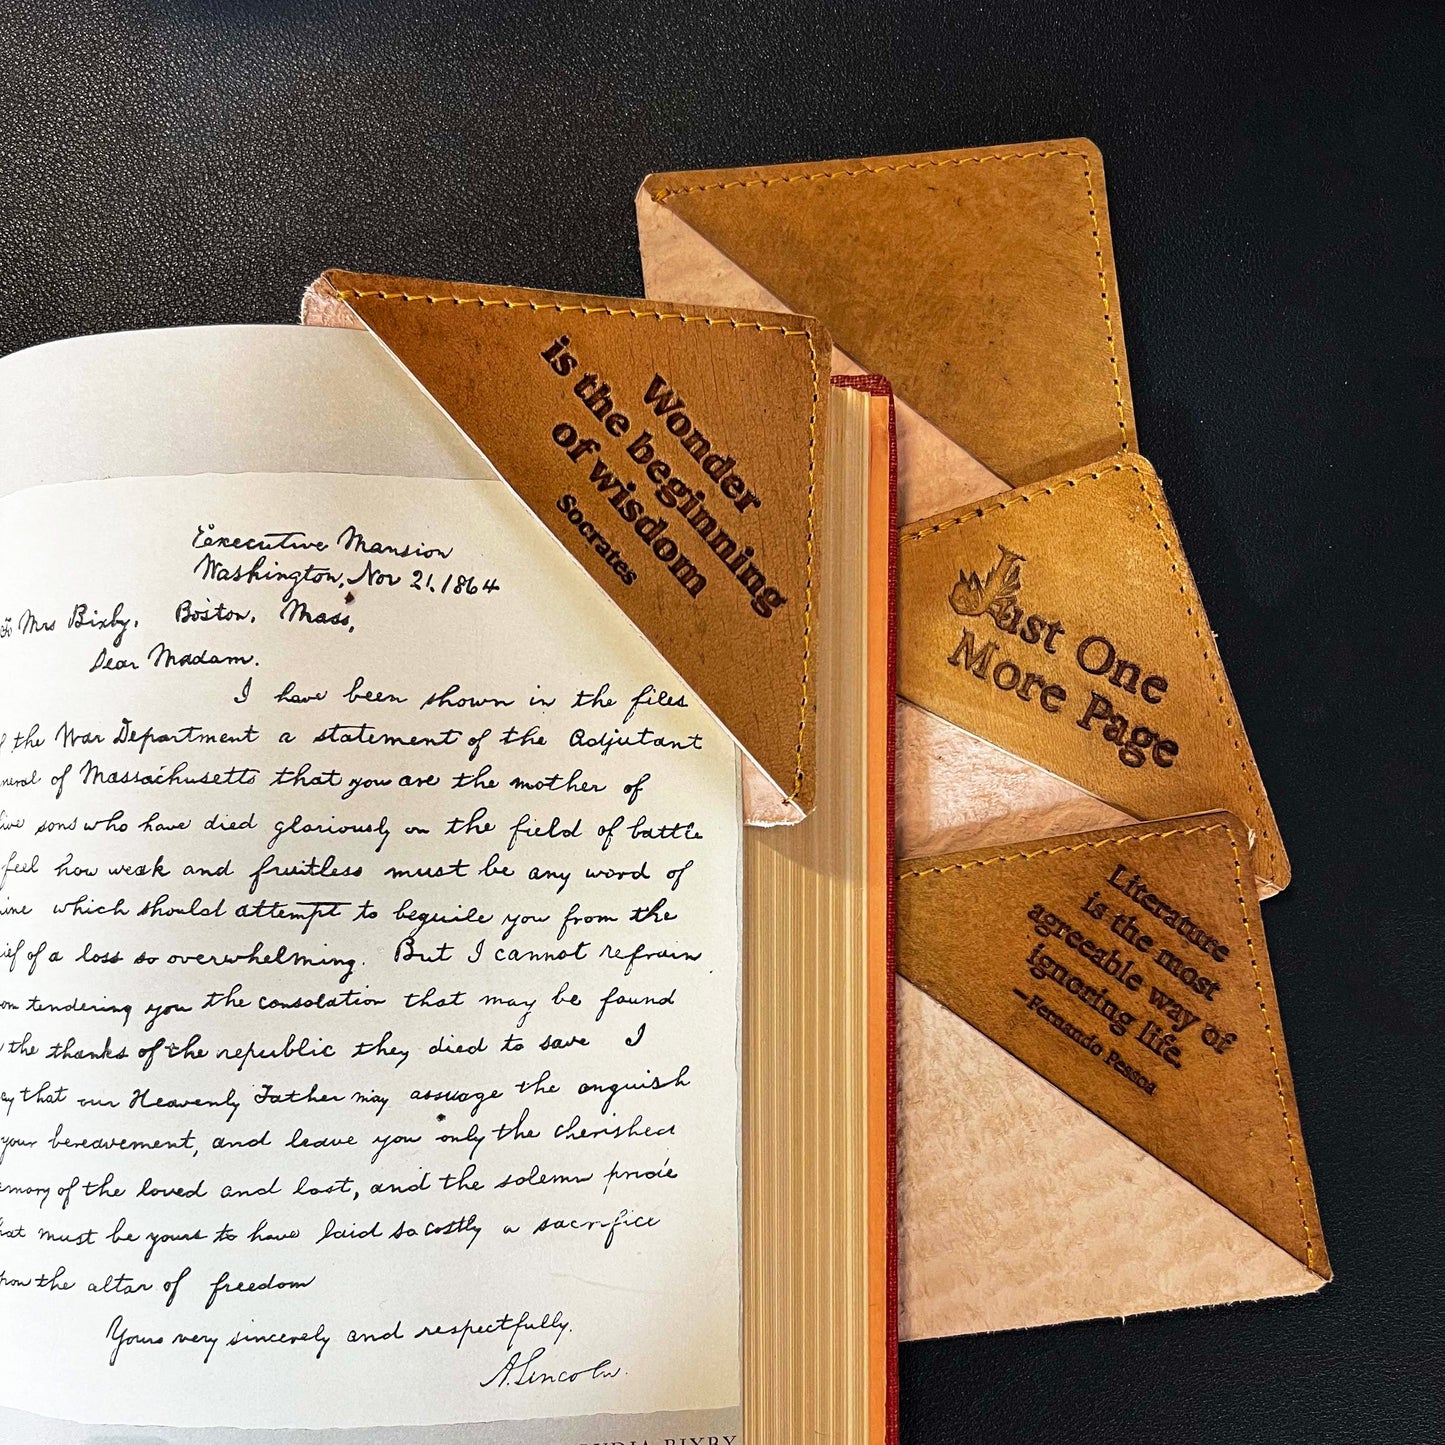 Executive Mansion
Washington, Nov 21, 1864
To Mrs Bixby, Boston, Mass,
Dear Madam.
I have been shown in the files
the War Department a statement of the Adjutant
of Massachusetts that you are the mother of
sons who have died gloriously on the field of battle
feel how weak and fruitless must be any word of
which should attempt to beguile you from the
of a loss so overwhelming. But I cannot refrain
tendering you the consolation that may be found
the thanks of the republic they died to save I
that our Heavenly Father may assuage the anguish
your bereavement, and leave you only the cherished
of the loved and lost, and the solemn pride
must be yours to have laid so costly a sacrifice
the altar of freedom
Yours very sincerely and respectfully.
A. Lincoln.
BIXBY
Wonder
is the beginning
of wisdom
Socrates
Just One
More Page
Literature
is the most
agreeable way of
ignoring life.
—Fernando Pessoa